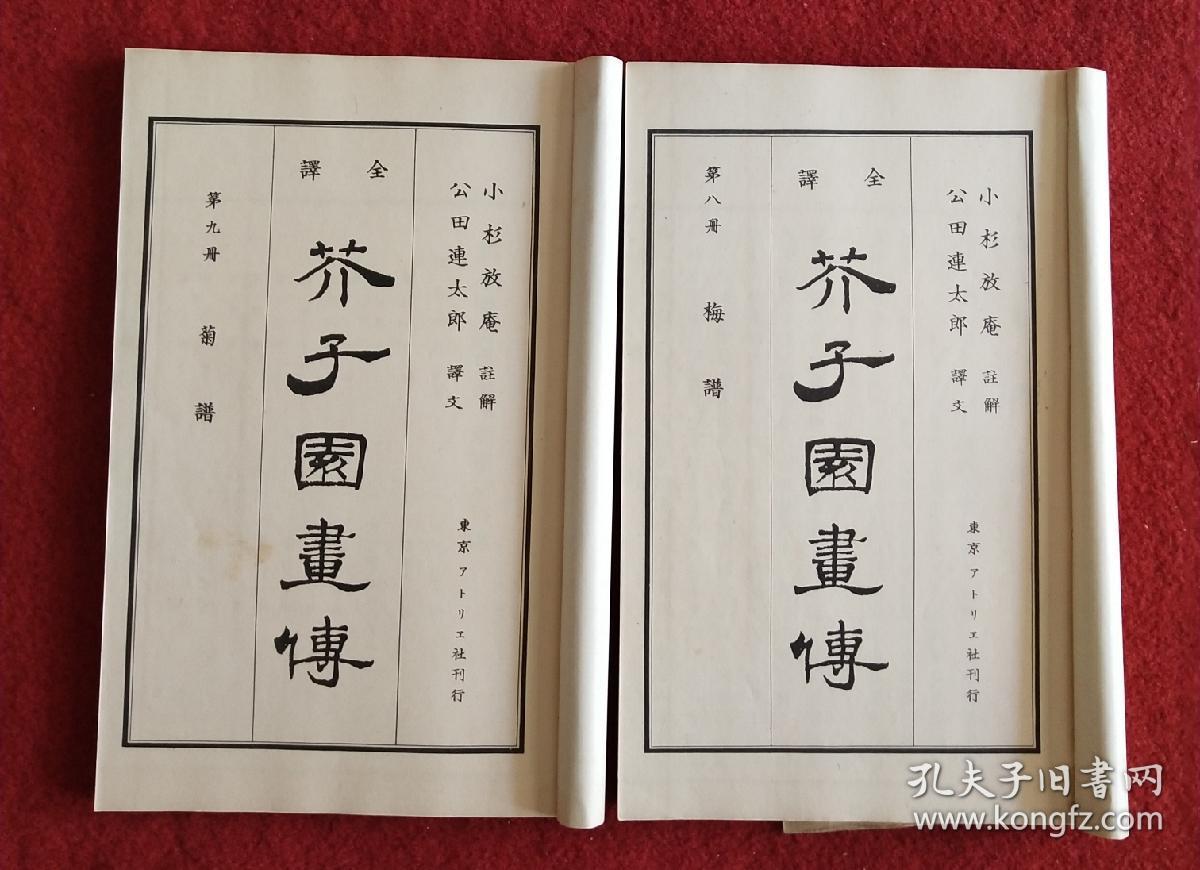 小杉放庵 註解
公田連太郎 譯文
東京アトリヱ社刊行
全譯
芥子園畫傳
第九冊 菊譜
小杉放庵 註解
公田連太郎 譯文
東京アトリヱ社刊行
全譯
芥子園畫傳
第八冊 梅譜
孔夫子旧书网
www.kongfz.com